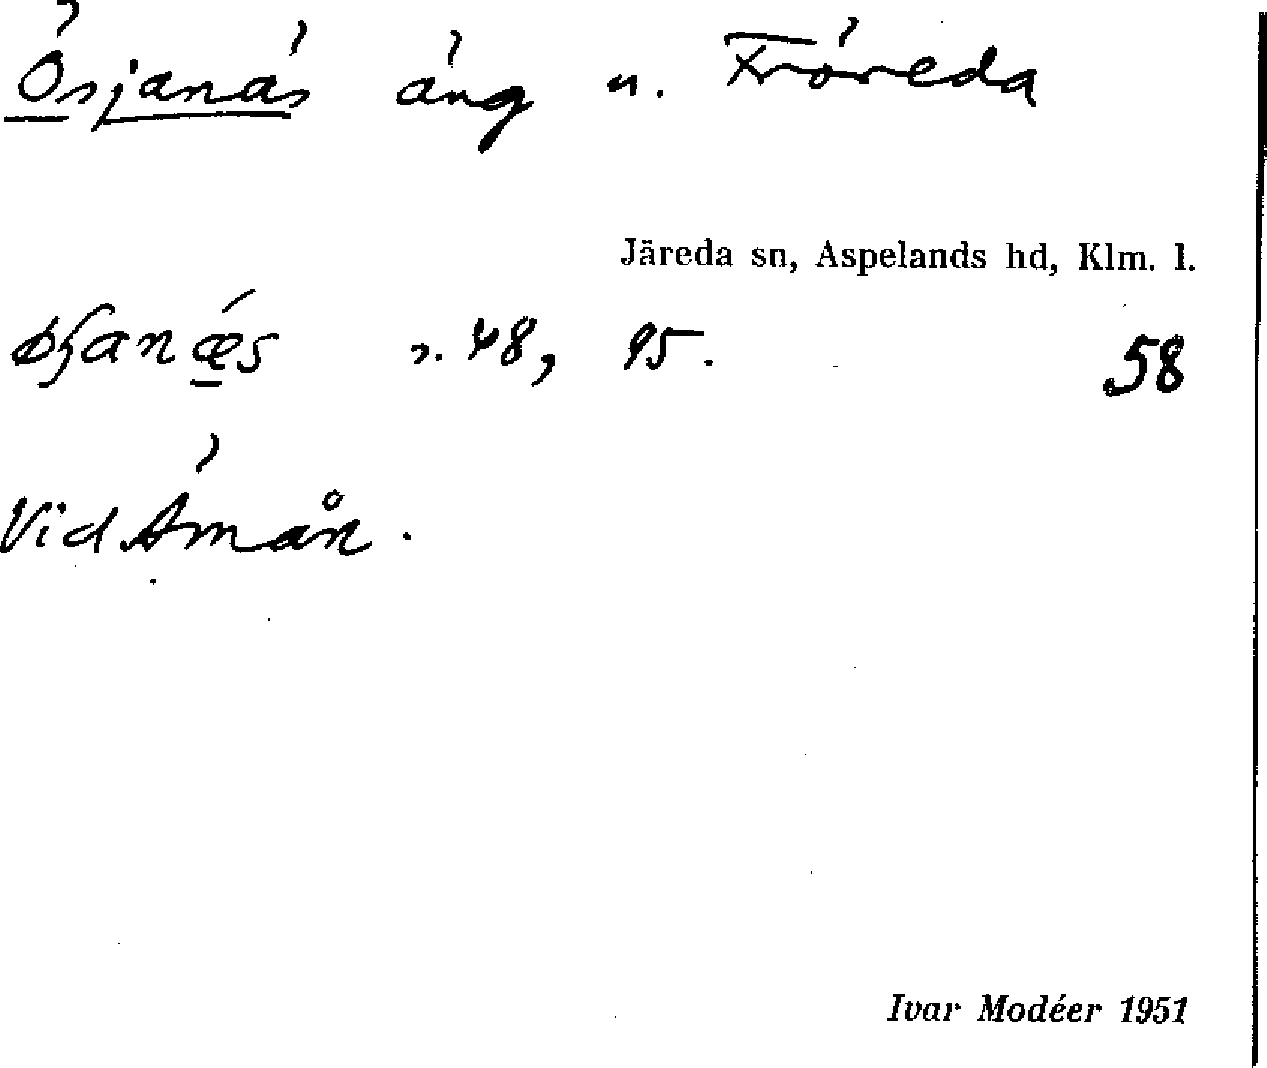 Ösjanäs äng u. Fröreda
Järeda sn, Aspelands hd, Klm. l.
s. 48, 95. 58
Vid Åmån.
Ivar Modéer 1951